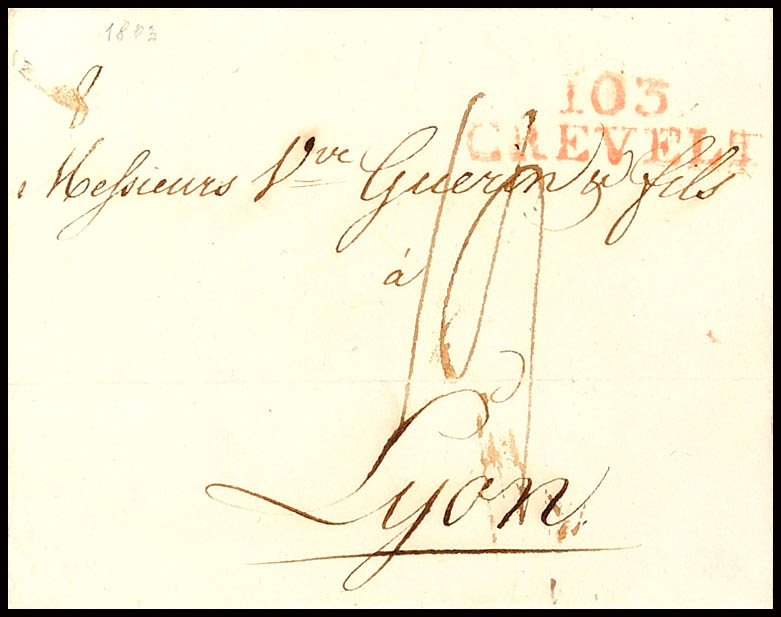 1803
103
CREVELT
Messieurs Vve Guerin & fils
á
Lyon